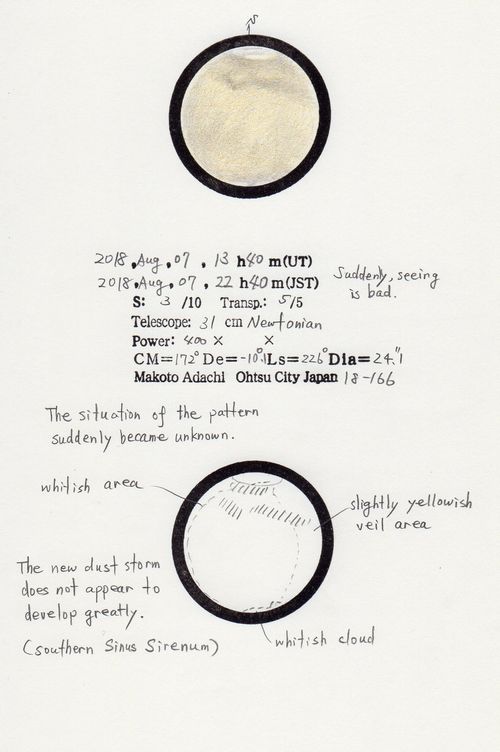 S
2018, Aug, 07, 13 h 40 m (UT)
2018, Aug, 07, 22 h 40 m (JST)
Suddenly, seeing
is bad.
S: 3 /10 Transp.: 5/5
Telescope: 31 cm Newtonian
Power: 400 × ×
CM=172° De=-10.°1 Ls=226° Dia=24."1
Makoto Adachi Ohtsu City Japan 18-166
The situation of the pattern
suddenly became unknown.
whitish area
slightly yellowish
veil area
The new dust storm
does not appear to
develop greatly.
(southern Sinus Sirenum)
whitish cloud